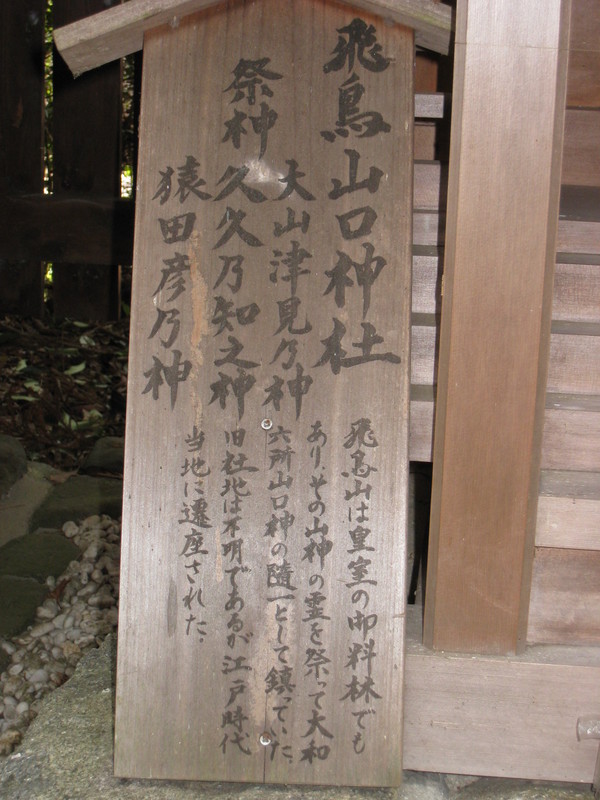 飛鳥山口神社
祭神
大山津見乃神
久久乃知之神
猿田彦乃神
飛鳥山は皇室の御料林でも
あり、その山神の霊を祭って大和
六所山口神の随一として鎮っていた、
旧社地は不明であるが江戸時代
当地に遷座された、